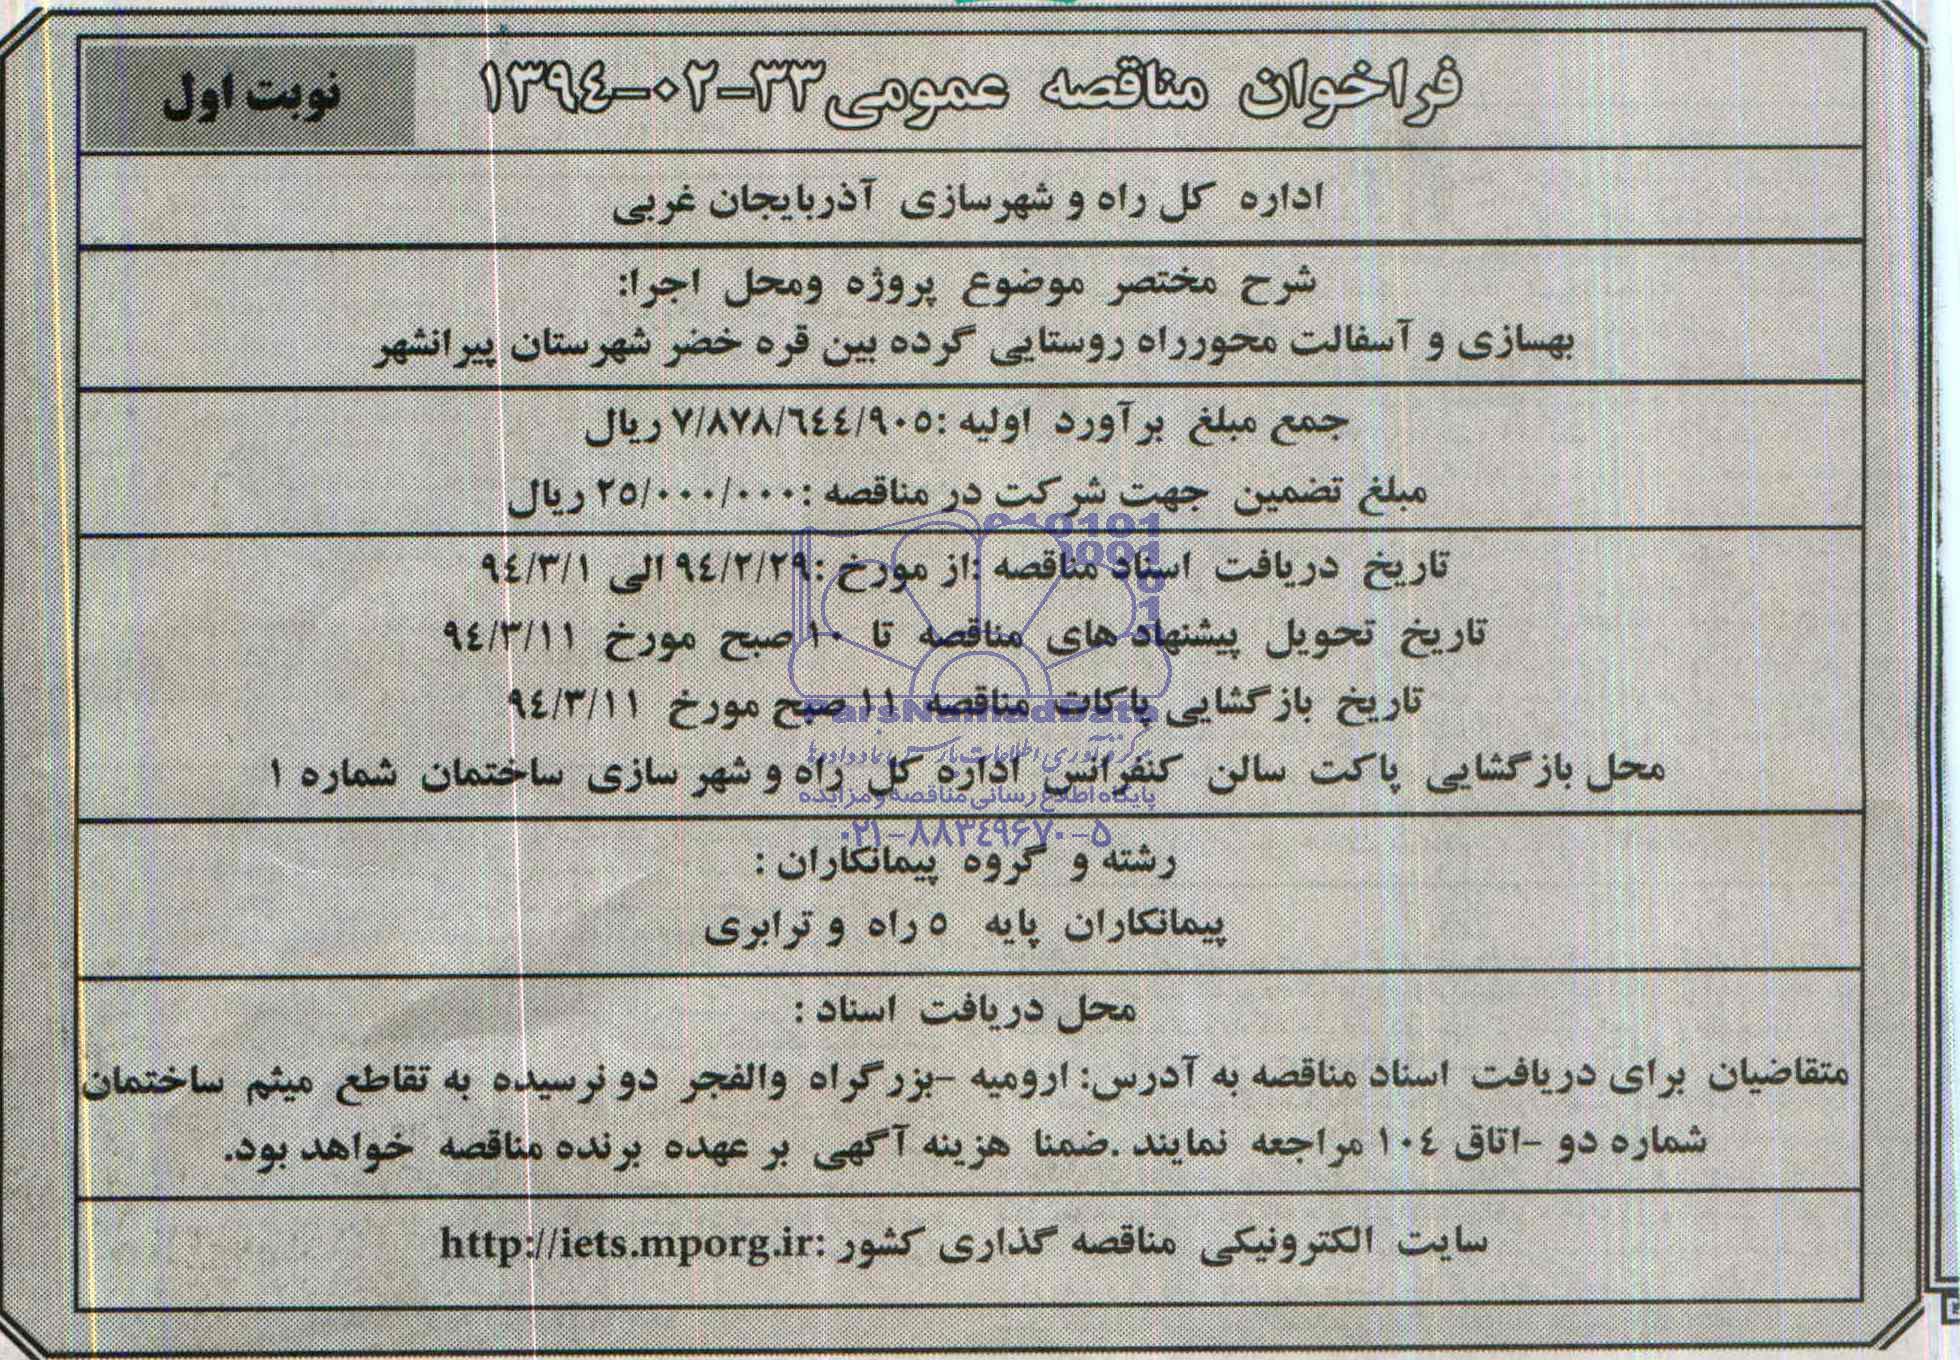 فراخوان مناقصه عمومی ۳۳-۰۲-۱۳۹٤
نوبت اول
اداره کل راه و شهرسازی آذربایجان غربی
شرح مختصر موضوع پروژه ومحل اجرا:
بهسازی و آسفالت محورراه روستایی گرده بین قره خضر شهرستان پیرانشهر
جمع مبلغ برآورد اولیه :۷/۸۷۸/٦٤٤/۹۰٥ ریال
مبلغ تضمین جهت شرکت در مناقصه :۲٥/۰۰۰/۰۰۰ ریال
تاریخ دریافت اسناد مناقصه :از مورخ :۹٤/۲/۲۹ الی ۹٤/۳/۱
تاریخ تحویل پیشنهاد های مناقصه تا ۱۰ صبح مورخ ۹٤/۳/۱۱
تاریخ بازگشایی پاکات مناقصه ۱۱ صبح مورخ ۹٤/۳/۱۱
ParsNamadData
مرکز فرآوری اطلاعات پارس نماد داده‌ها
محل بازگشایی پاکت سالن کنفرانس اداره کل راه و شهر سازی ساختمان شماره ۱
پایگاه اطلاع رسانی مناقصه و مزایده
۰۲۱-۸۸۳٤۹۶۷۰-۵
رشته و گروه پیمانکاران :
پیمانکاران پایه ٥ راه و ترابری
محل دریافت اسناد :
متقاضیان برای دریافت اسناد مناقصه به آدرس: ارومیه -بزرگراه والفجر دو نرسیده به تقاطع میثم ساختمان
شماره دو -اتاق ۱۰٤ مراجعه نمایند .ضمنا هزینه آگهی بر عهده برنده مناقصه خواهد بود.
سایت الکترونیکی مناقصه گذاری کشور :http://iets.mporg.ir